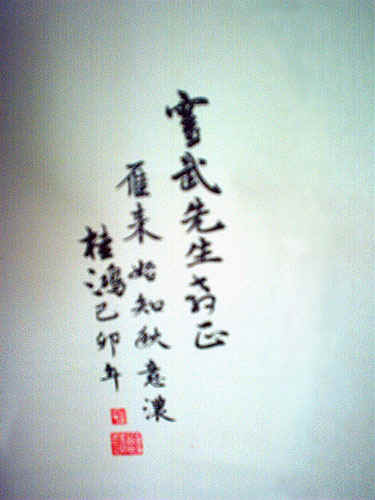 武先生正
雁来始知秋意濃
桂鴻己卯年